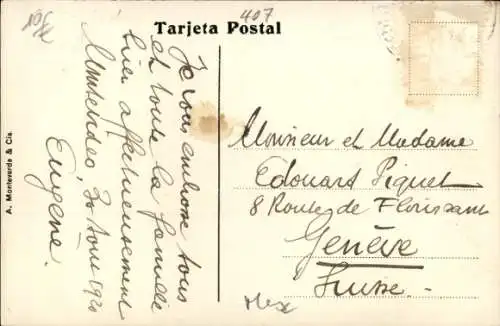 407
Tarjeta Postal
Je vous embrasse tous
et toute la famille
bien affectueusement
Montevideo, 20 Aout 1920
Eugène.
Monsieur et Madame
Edouard Piguet
8 Route de Florissant
Genève
Suisse.
A. Monteverde & Cía.